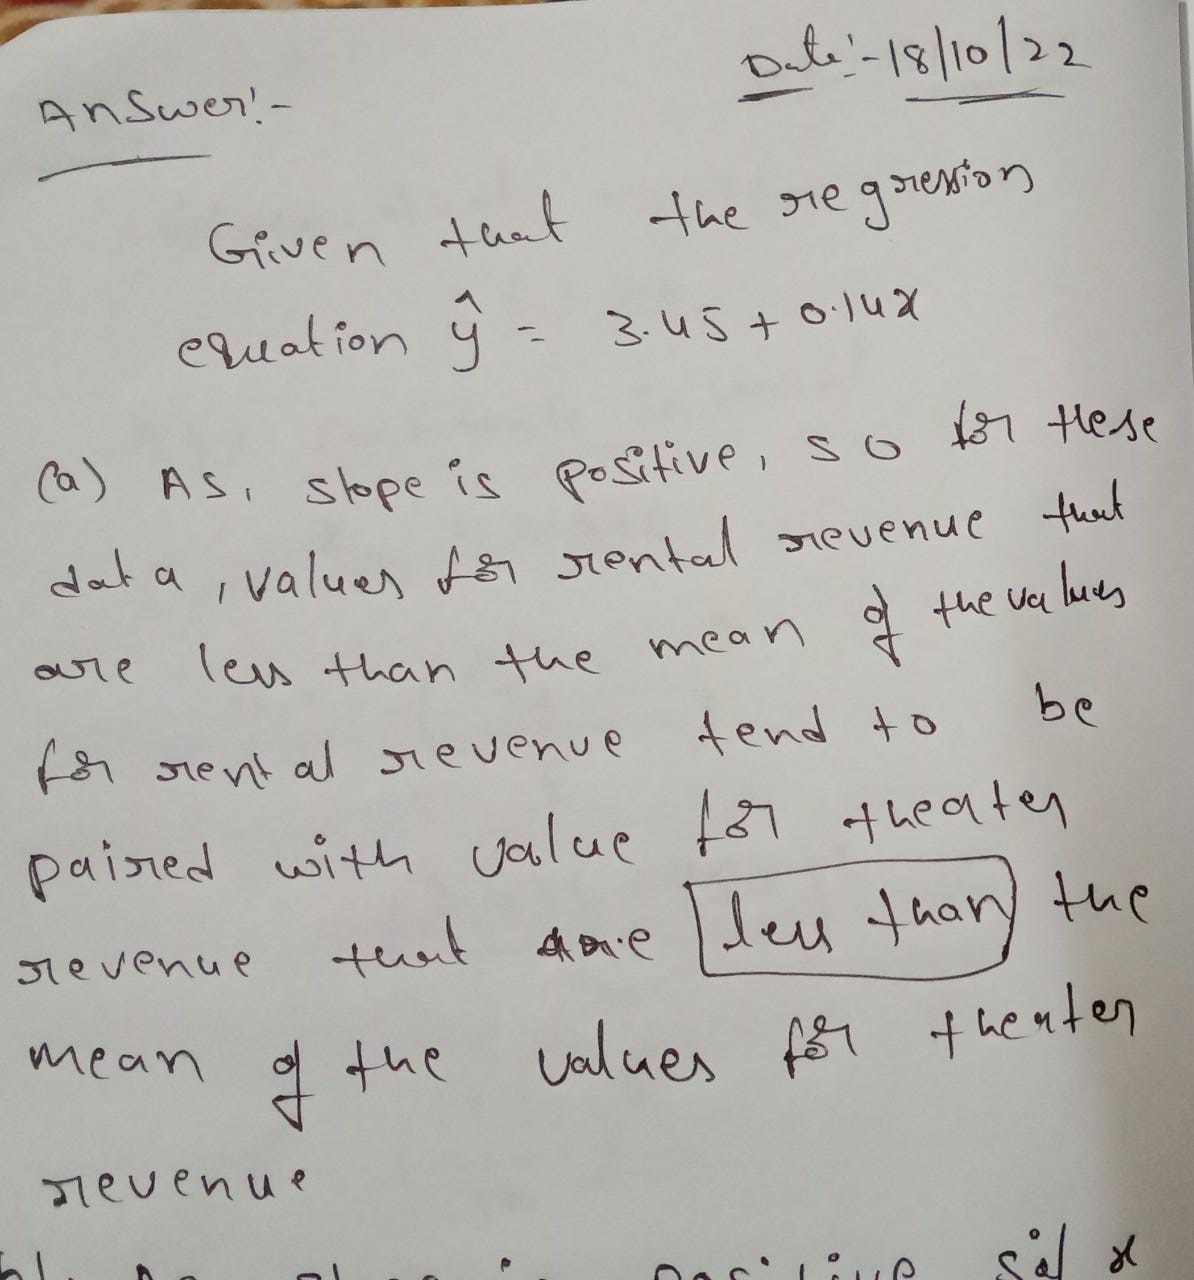 Date:-18/10/22
Answer:-
Given that the regression
equation ŷ = 3.45 + 0.14x
(a) As, slope is positive, so for these
data, values for rental revenue that
are less than the mean of the values
for rental revenue tend to be
paired with value for theater
revenue that are less than the
mean of the values for theater
revenue
positive